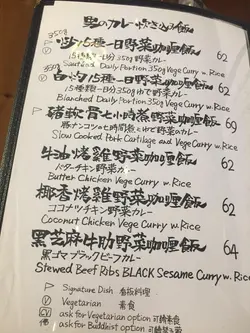 350g
炒15種一日野菜咖喱飯 62
15種類一日350g野菜カレー
Sautéed Daily Portion 350g Vege Curry w. Rice
白灼15種一日野菜咖喱飯 62
15種類一日350gゆで野菜カレー
Blanched Daily Portion 350g Vege Curry w. Rice
豚ナンコツの七時間煮込野菜カレー 69
Slow Cooked Pork Cartilage and Vege Curry w. Rice
牛油烤雞野菜咖喱飯 62
バターチキン野菜カレー
Butter Chicken Vege Curry w. Rice
椰香烤雞野菜咖喱飯 62
ココナツチキン野菜カレー
Coconut Chicken Vege Curry w. Rice
黑芝麻牛肋野菜咖喱飯 64
黒ゴマブラックビーフカレー
Stewed Beef Ribs BLACK Sesame Curry w. Rice
Signature Dish 看板料理
Ⓥ Vegetarian 素食
ask for Vegetarian option 可轉素食
ask for Buddhist option